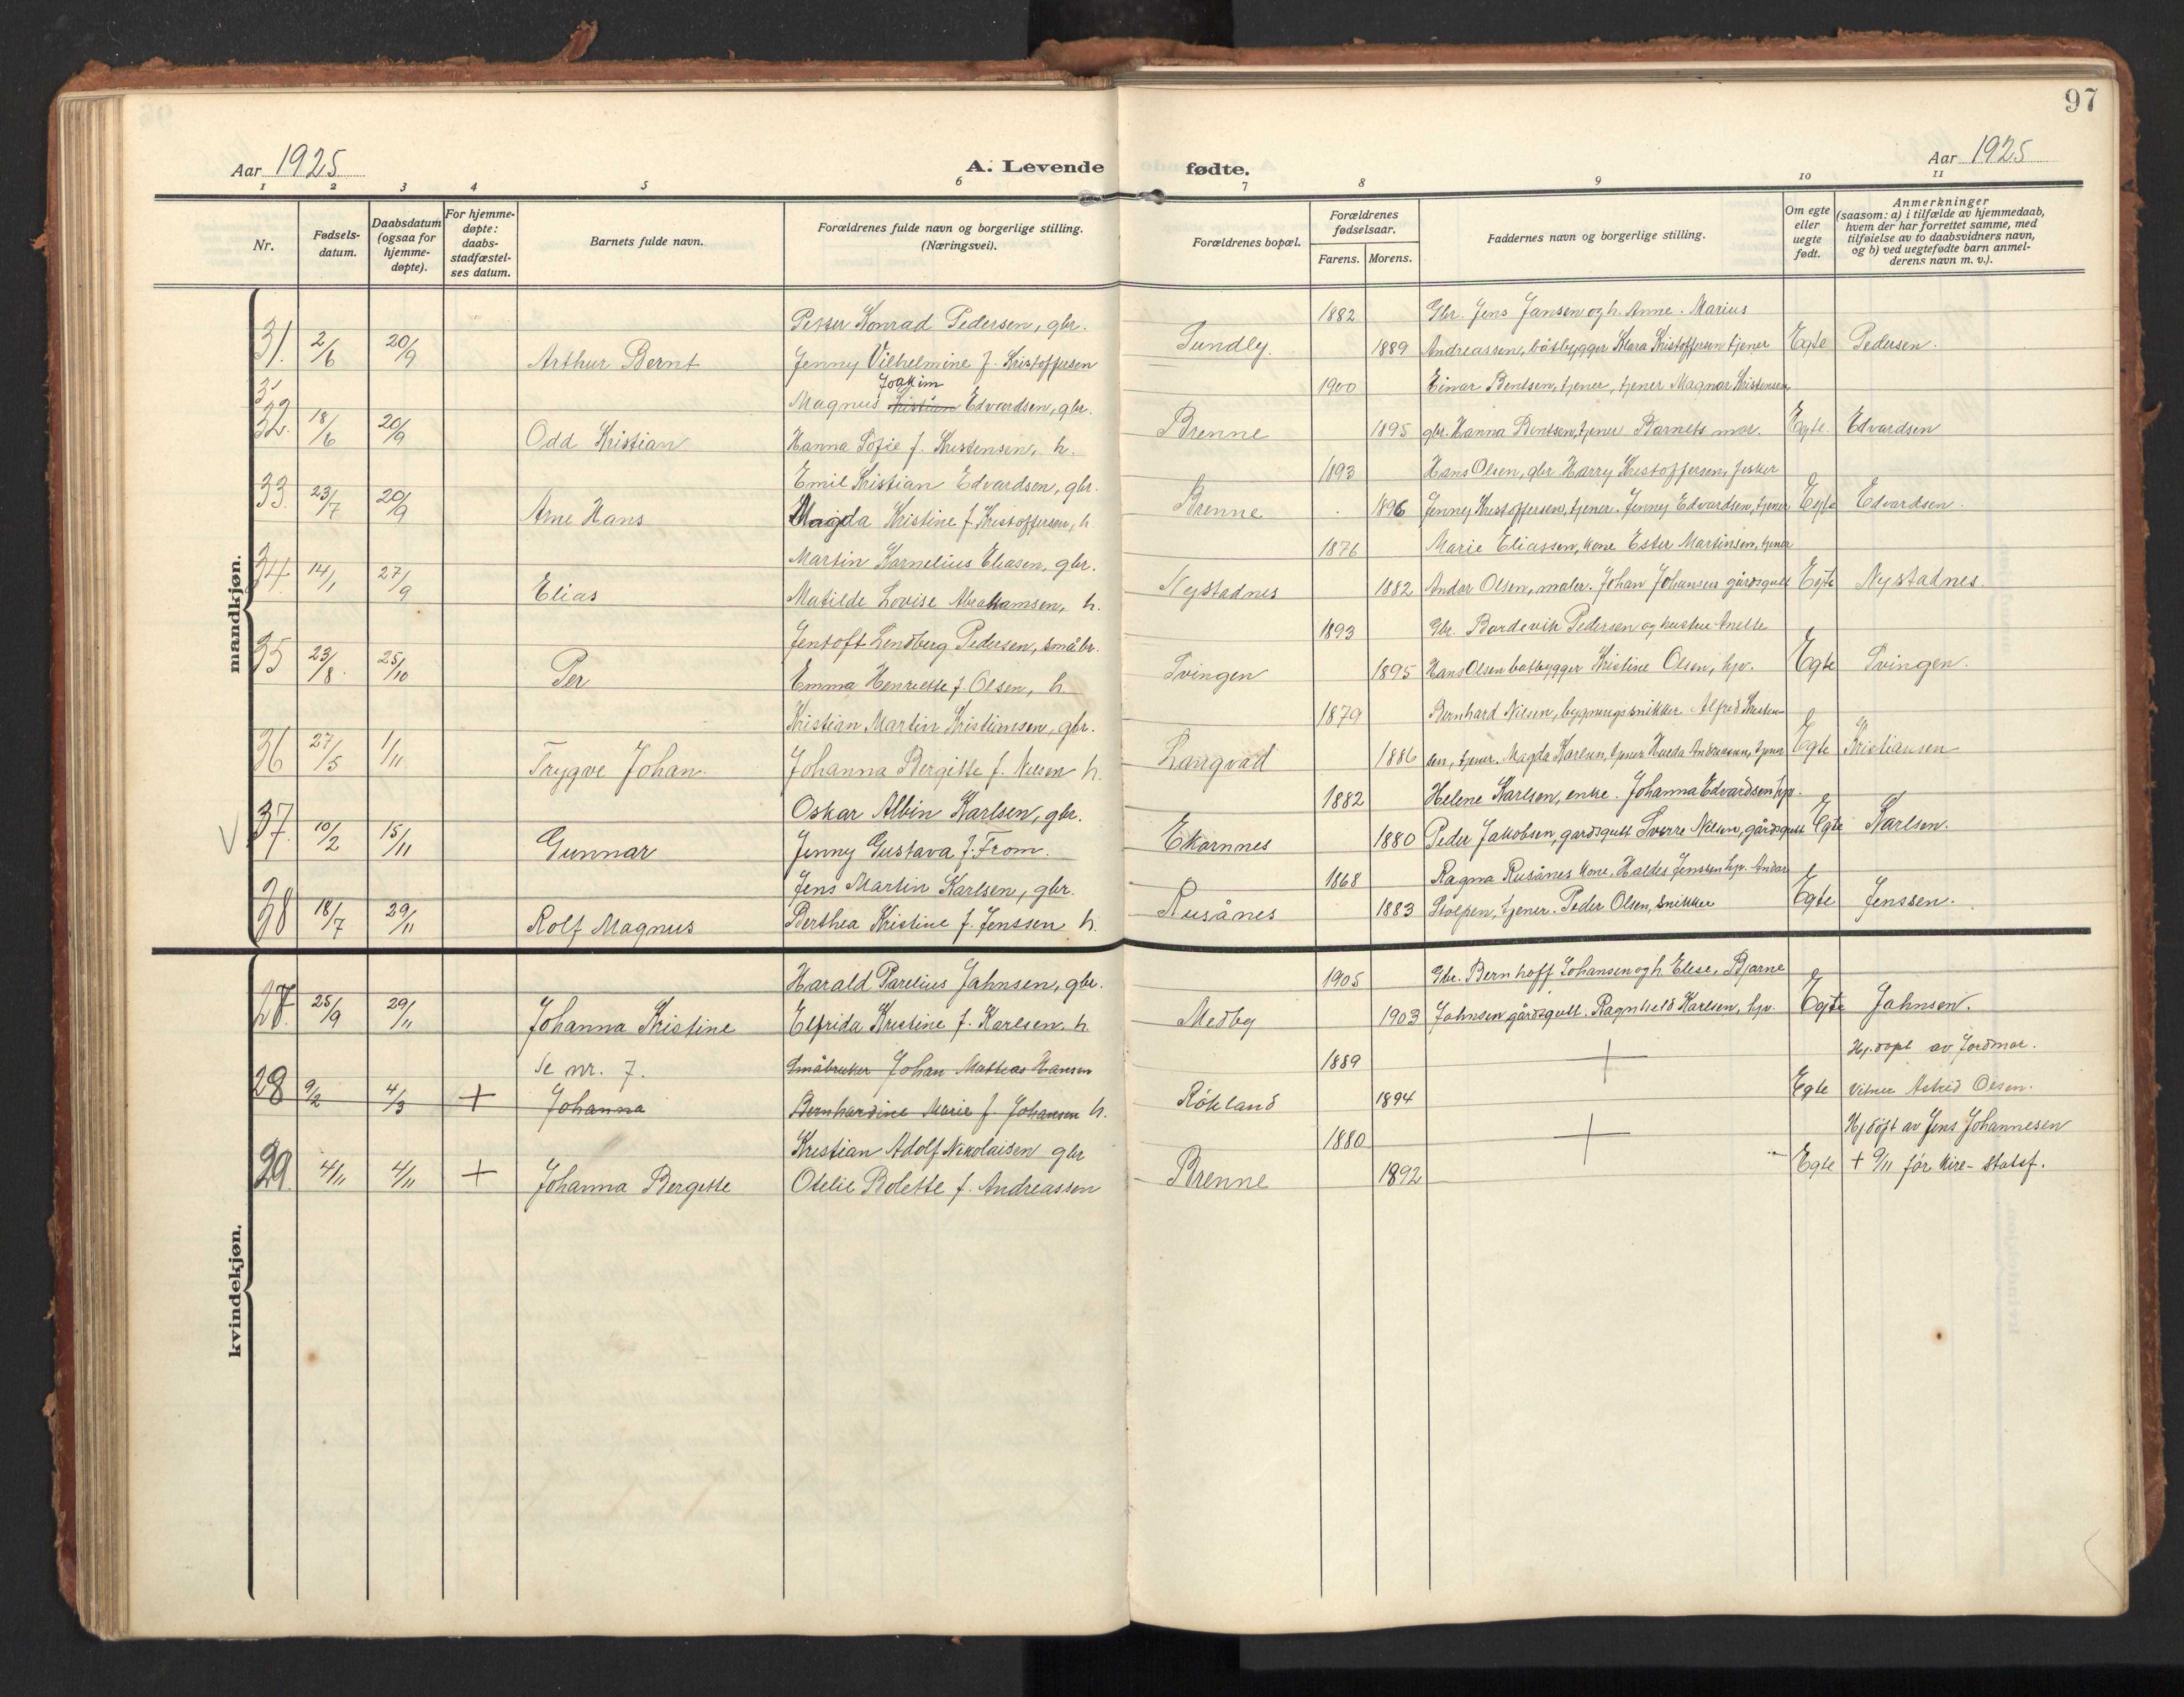 97
Aar 1925
A. Levende fødte.
Aar 1925
1 2 3 4 5 6 7 8 9 10 11
Nr.
Fødsels-
datum.
Daabsdatum
(ogsaa for
hjemme-
døpte).
For hjemme-
døpte:
daabs-
stadfæstel-
ses datum.
Barnets fulde navn.
Forældrenes fulde navn og borgerlige stilling.
(Næringsvei).
Forældrenes bopæl.
Forældrenes
fødselsaar.
Farens. Morens.
Faddernes navn og borgerlige stilling.
Om egte
eller
uegte
født.
Anmerkninger
(saasom: a) i tilfælde av hjemmedaab,
hvem der har forrettet samme, med
tilføielse av to daabsvidners navn,
og b) ved uegtefødte barn anmel-
derens navn m. v.).
mandkjøn.
Petter Konrad Pedersen, gbr. 1882 Gbr. Jens Jansen og h. Anne. Marius
31. 2/6 20/9 Arthur Bernt Jenny Vilhelmine f. Kristoffersen Sundby. 1889 Andreassen, båtbygger Klara Kristoffersen tjener Egte Pedersen.
Joakim
Magnus Kristian Edvardsen, gbr. 1900 Einar Bentsen, tjener, tjener Magnar Kristensen,
32. 18/6 20/9 Odd Kristian Hanna Sofie f. Kristensen, h. Brenne 1895 gbr. Hanna Bentsen, tjener Barnets mor. Egte. Edvardsen
Emil Kristian Edvardsen, gbr. 1893 Hans Olsen, gbr Harry Kristoffersen, fisker
33. 23/7 20/9 Arne Hans Magda Kristine f. Kristoffersen, h Brenne 1896 Jenny Kristoffersen, tjener. Jenny Edvardsen, tjener Egte Edvardsen.
Martin Kornelius Eliasen, gbr. 1876 Marie Eliassen, kone Ester Martinsen, tjener
34. 14/1 27/9 Elias Matilde Lovise Abrahamsen, h. Nystadnes 1882 Andor Olsen, maler. Johan Johansen gårdsgutt Egte Nystadnes.
Jentoft Lendberg Pedersen, småbr. 1893 Gbr. Bardevik Pedersen og hustru Anette
35 23/8. 25/10 Per Emma Henriette f. Olsen, h Svingen 1895 Hans Olsen båtbygger Kristine Olsen, hp. Egte Svingen.
Kristian Martin Kristiansen, gbr. 1879 Bernhard Nilsen, bygningssnikker Alfred Kristen-
36 27/5 1/11 Trygve Johan. Johanna Bergitte f. Nilsen h. Langvad 1886 sen, tjener. Magda Karlsen, tjener Andreassen, tjener Egte Kristiansen
Oskar Albin Karlsen, gbr. 1882 Helene Karlsen, enke. Johanna Edvardsen hp.
37. 10/2 15/11 Gunnar Jenny Gustava f. From. Ekornnes 1880 Peder Jakobsen, gardsgutt Sverre Nilsen, gårdsgutt Egte Karlsen.
Jens Martin Karlsen, gbr. 1868 Ragna Rusånes kone, Haldis Jenssen hp. Andor
38 18/7 29/11 Rolf Magnus Berthea Kristine f. Jenssen h. Rusånes 1883 Stolpen, tjener. Peder Olsen, snikker Egte Jenssen.
kvindekjøn.
Harald Parelius Jahnsen, gbr. 1905 Gbr. Bernhoff Johansen og h Elise, Bjarne
27. 25/9 29/11 Johanna Kristine Elfrida Kristine f. Karlsen h Medby 1903 Jahnsen gårdsgutt. Ragnhild Karlsen, hp. Egte Jahnsen.
Se nr. 7. Småbruker Johan Mathias Hansen 1889 + Hj. døpt av Jordmor.
28 9/2 4/3 + Johanna Bernhardine Marie f. Johansen h. Rökland 1894 Egte Vitner Astrid Olsen.
Kristian Adolf Nikolaisen gbr 1880 + Hj döpt av Jens Johannesen
29. 4/11 4/11 + Johanna Bergitte Otelie Bolette f. Andreassen Brenne 1892 Egte + 9/11 för kire- statsf.